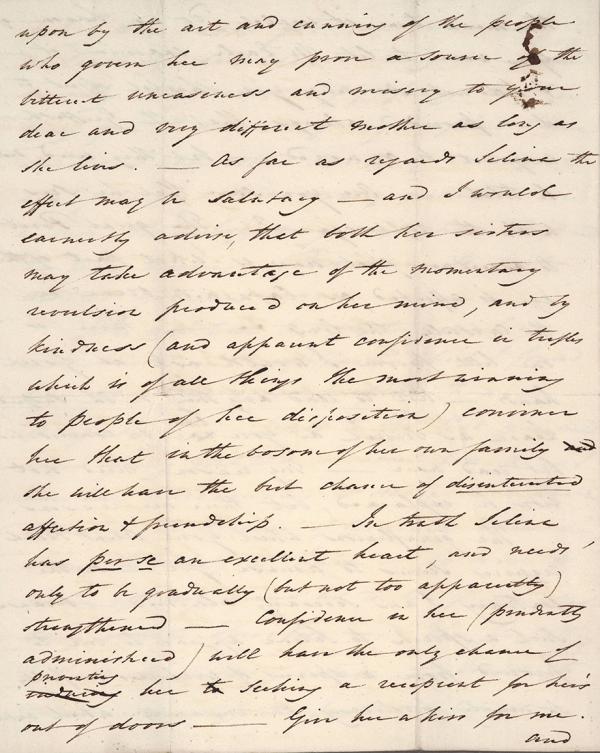 upon by the art and cunning of the people
who govern her may prove a source of the
bitterest uneasiness and misery to your
dear and very different mother as long as
she lives. — As far as regards Selina the
effect may be salutary — and I would
earnestly advise, that both her sisters
may take advantage of the momentary
revulsion produced on her mind, and by
kindness (and apparent confidence in trifles
which is of all things the most winning
to people of her disposition) convince
her that in the bosom of her own family and
she will have the best chance of disinterested
affection & friendship. — In truth Selina
has per se an excellent heart, and needs
only to be gradually (but not too apparently)
strengthened — Confidence in her (prudently
administered) will have the only chance of
preventing
her to seeking a recipient for hers
out of doors — Give her a kiss for me.
and